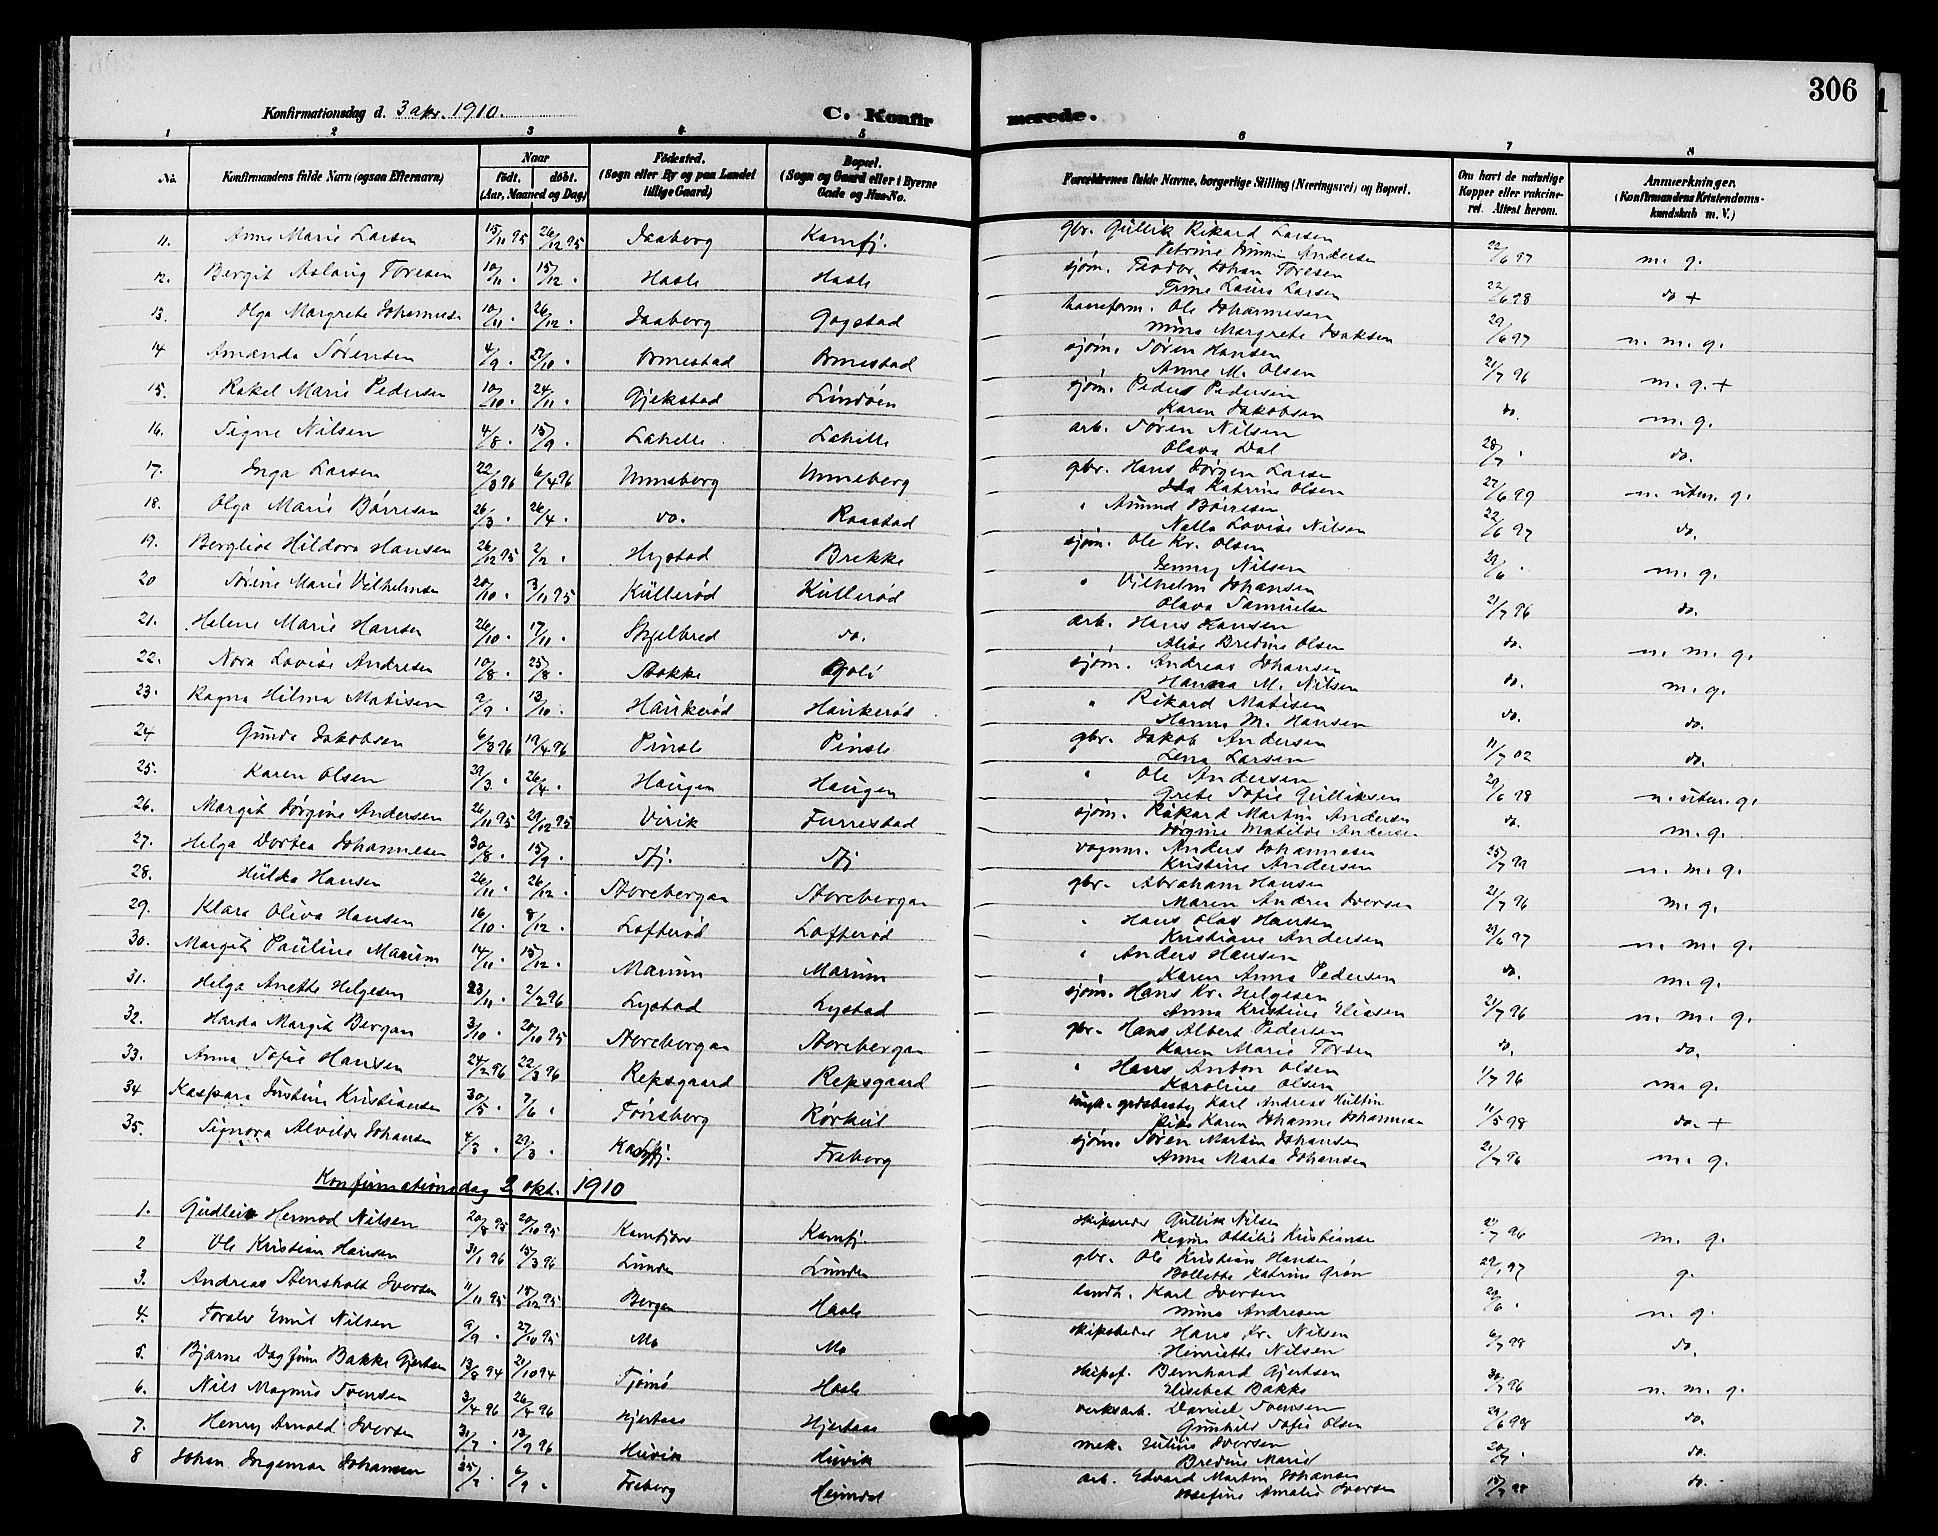 306
Konfirmationsdag d. 3 apr. 1910. C. Konfirmerede.
1 2 3 4 5 6 7 8
No. Konfirmandens fulde Navn (ogsaa Efternavn) Naar født. døbt. (Aar, Maaned og Dag) Fødested. (Sogn eller By og paa Landet tillige Gaard) Bopæl. (Sogn og Gaard eller i Byerne Gade og Hus-No. Forældrenes fulde Navne, borgerlige Stilling (Næringsvei) og Bopæl. Om havt de naturlige Kopper eller vakcineret. Attest herom. Anmærkninger. (Konfirmandens Kristendomskundskab m. V.)
11. Anne Marie Larsen 15/11 95 26/12 95 Kamfj. gbr. Gullik Rikard Larsen
Petrine Andersen 22/6 97 m. g.
12. Bergit Aslaug Toresen 10/11 . 15/12 . Hasle Hasle sjøm. Teodor Johan Toresen
Trine Laura Larsen 22/6 98 do +
13. Olga Margrete Johannesen 10/11 . 26/12 . Gogstad Ole Johannesen
Mina Margrete Isaksen 29/6 97 n. m. g.
14 Amanda Sørensen 4/9 . 27/10 . Ormestad Ormestad sjøm. Søren Hansen
Anne M. Olsen 21/7 96 m. g. +
15. Rakel Marie Pedersen 10/10 . 24/11 . Gjekstad Lindöen sjøm. Peder Pedersen
Karen Jakobsen do. m. g.
16. Signe Nilsen 4/8 . 15/9 . Lahelle Lahelle arb. Søren Nilsen
Olava Dal 28/7 . do.
17. Inga Larsen 22/3 96 6/4 96 Unneberg Unneberg gbr. Hans Jørgen Larsen
Ida Katrine Olsen 27/6 99 n. utm. g.
18. Olga Marie Børresen 26/3 . 26/4 . do. Raastad " Amund Børresen
Lovise Nilsen 22/6 97 do.
19. Bergliot Hildora Hansen 26/12 95 2/2 . Hystad Brekke sjøm. Ole Kr. Olsen
Jenny Nilsen 29/6 . m. g.
20 Sørine Marie Vilhelmsen 20/10 . 3/11 95 Küllerød Küllerød " Vilhelm Johansen
Olava Samuelsen 21/7 96 do.
21. Helene Marie Hansen 26/10 . 17/11 . Skjelbred do. arb. Hans Hansen
Alise Bredine Olsen do. n. m. g.
22. Nora Lovise Andresen 10/8 . 25/8 . Stokke sjøm. Andreas Johansen
Hanna M. Nilsen do. m. g.
23. Ragna Hilma Matisen 9/9 . 13/10 . Haukerød Haukerød " Rikard Matisen
Hanna M. Hansen do. do.
24 Gunda Jakobsen 6/3 96 19/4 96 Pinsle Pinsle gbr. Jakob Andersen
Lena Larsen 11/7 02 do.
25. Karen Olsen 29/3 . 26/4 . Haugen Haugen " Ole Andersen
Grete Sofie Gulliksen 29/6 98 n. utm. g.
26. Margit Jørgine Andersen 26/11 95 29/12 95 Virik Furrestad sjøm. Rikard Martin Andersen
Jørgine Matilde Andersen do. m. g.
27. Helga Dortea Johannesen 30/8 . 15/9 . Sfj. Sfj vognm. Anders Johannesen
Kristine Andersen 25/7 99 n. m. g.
28. Hulda Hansen 26/11 . 26/12 . Storebergan Storebergan gbr. Abraham Hansen
Maren Andrea Iversen 21/7 96 m. g.
29. Klara Oliva Hansen 16/10 . 8/12 . Lofterød Lofterød " Hans Olas Hansen
Kristiane Andersen 29/6 97 n. m. g.
30. Margit Pauline Marum 14/11 . 15/12 . Marum Marum " Anders Hansen
Karen Anna Pedersen do. m. g.
31. Helga Anette Helgesen 23/11 . 2/2 96 Lystad Lystad sjøm. Hans Kr. Helgesen
Anna Kristine Eliasen 21/7 96 n. m. g.
32. Harda Margit Bergan 3/10 . 20/10 95 Storebergan Storebergan gbr. Hans Albert Pedersen
Karen Marie Torsen do. do.
33. Anna Sofie Hansen 24/2 96 22/3 96 Repsgaard Repsgaard " Hans Anton Olsen
Karoline Olsen 1/7 96 m. g.
34 Kaspara Justine Kristiansen 30/5 . 7/6 . Tønsberg Rørkul Karl Andreas Hultin
Karen Johanne Johannesen 11/5 98 do. +
35. Signora Alvilde Johansen 29/3 . Freberg sjøm. Søren Martin Johansen
Anna Marta Johansen 21/7 96 m. g.
Konfirmationsdag 2 okt. 1910
1. Gudleik Hermod Nilsen 20/8 95 20/10 95 Kamfjord Kamfj. skipsreder Gullik Nilsen
Regine Ottilie Kristiansen m. g.
2 Ole Kristian Hansen 31/1 96 15/3 96 Lunden Lunden gbr. Ole Kristian Hansen
Bollette Katrine Grøn g.
3. Andreas Stensholt Iversen 11/11 95 15/12 95 Bergan Hasle landh. Karl Iversen
Mina Andresen n. g.
4. Toralv Emil Nilsen 9/9 . 27/10 95 Mo Mo skipsreder Hans Kr. Nilsen
Henriette Nilsen 6/7 98 do.
5. Bjarne Dagfinn Bakke Gjertsen 13/8 94 21/10 94 Tjømø Hasle skipsf. Bernhard Gjertsen
Elisebet Bakke n. m. g.
6. Nils Magnus Svensen 3/4 96 26/4 96 Hjertaas Hjertaas verksarb. Daniel Svensen
Gunhild Sofie Olsen 29/6 98 do.
7. Henry Arnold Iversen 31/7 . 13/9 96 Huvik Huvik mek. Julius Iversen
Bredine Marie do.
8 Johan Ingemar Johansen 25/7 . 6/9 . Freberg Heimdal arb. Edvard Martin Johansen
Josefine Amalie Iversen do.